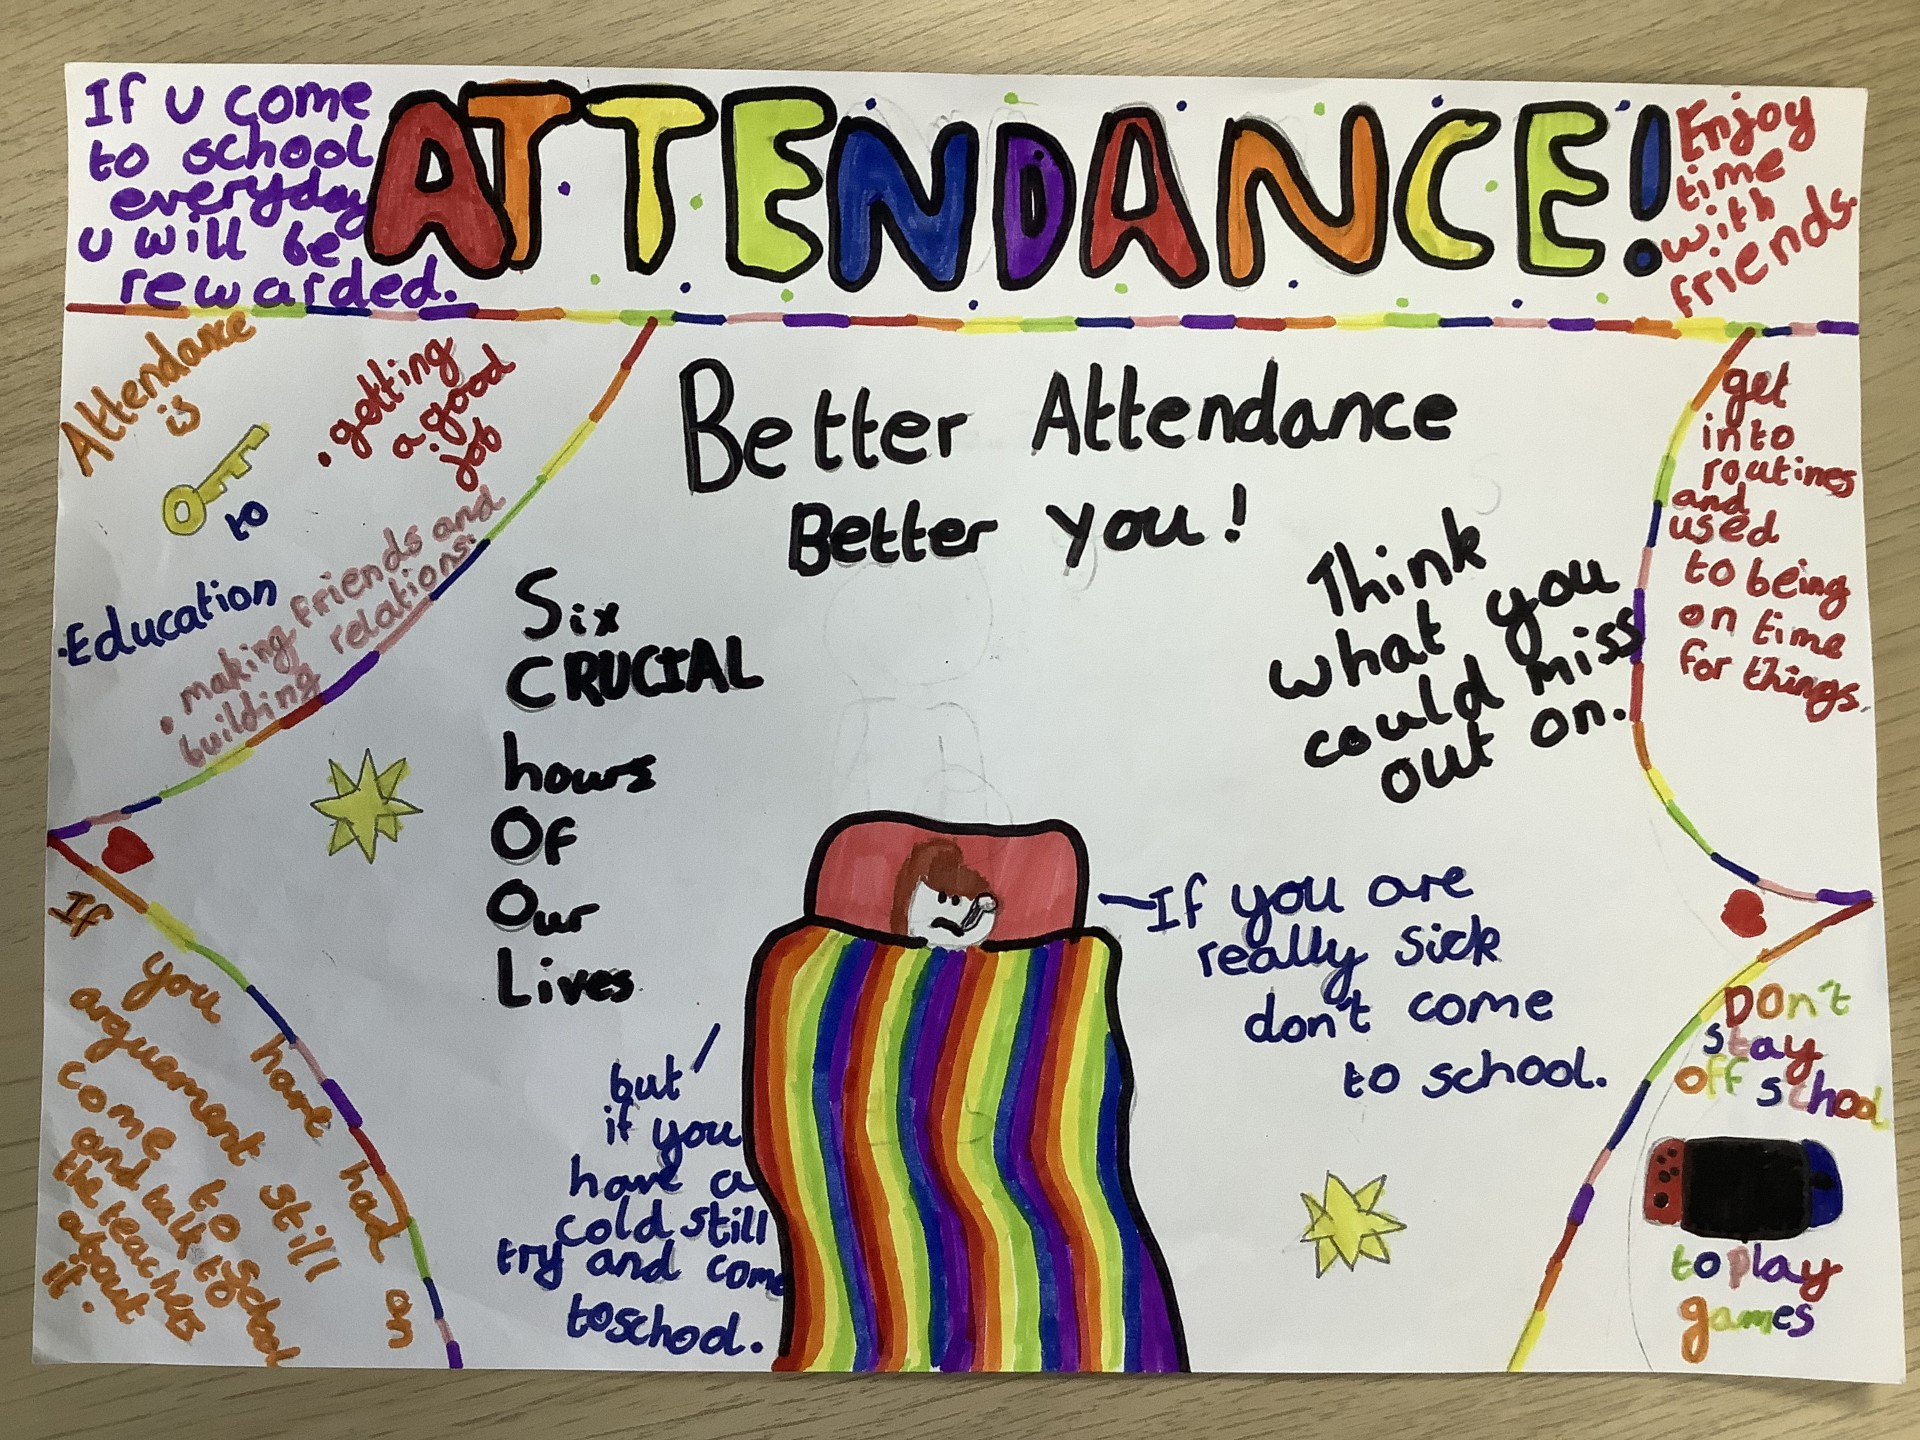 If u come
to school
everyday
u will be
rewarded.
ATTENDANCE!
Enjoy
time
with
friends.
Attendance
is
to
• Education
• getting
a good
job
• making friends and
building relations.
Better Attendance
Better you!
Six
CRUCIAL
hours
Of
Our
Lives
Think
what you
could miss
out on.
get
into
routines
and
used
to being
on time
for things.
If you are
really sick
don't come
to school.
but
if you
have a
cold still
try and come
to school.
If you have had an
arguement still
come to school
and talk to
the teachers
about
it.
Don't
stay
off school
to play
games